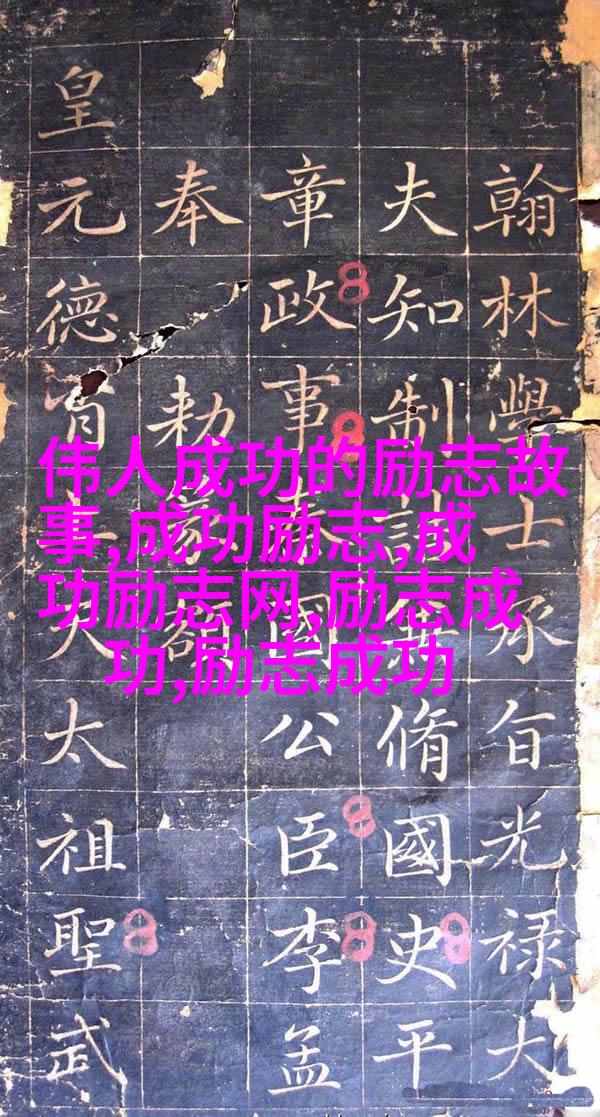 翰林學士承旨光禄大
夫知制誥脩國史平
章政事秦國公臣李孟
奉勅篆額
皇元德太祖聖武
伟人成功的励志故
事,成功励志,成
功励志网,励志成
功,励志成功